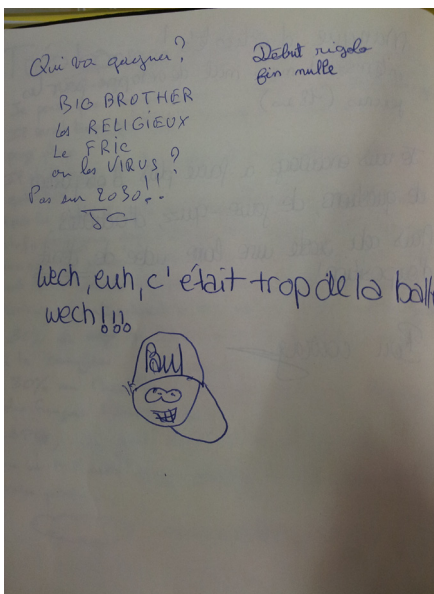 Qui va gagner ?
BIG BROTHER
les RELIGIEUX
Le FRIC
ou les VIRUS ?
Pas sur 2030 !!
JC
Début rigolo
fin nulle
Wech, euh, c'était trop de la ball
wech !!!
Paul